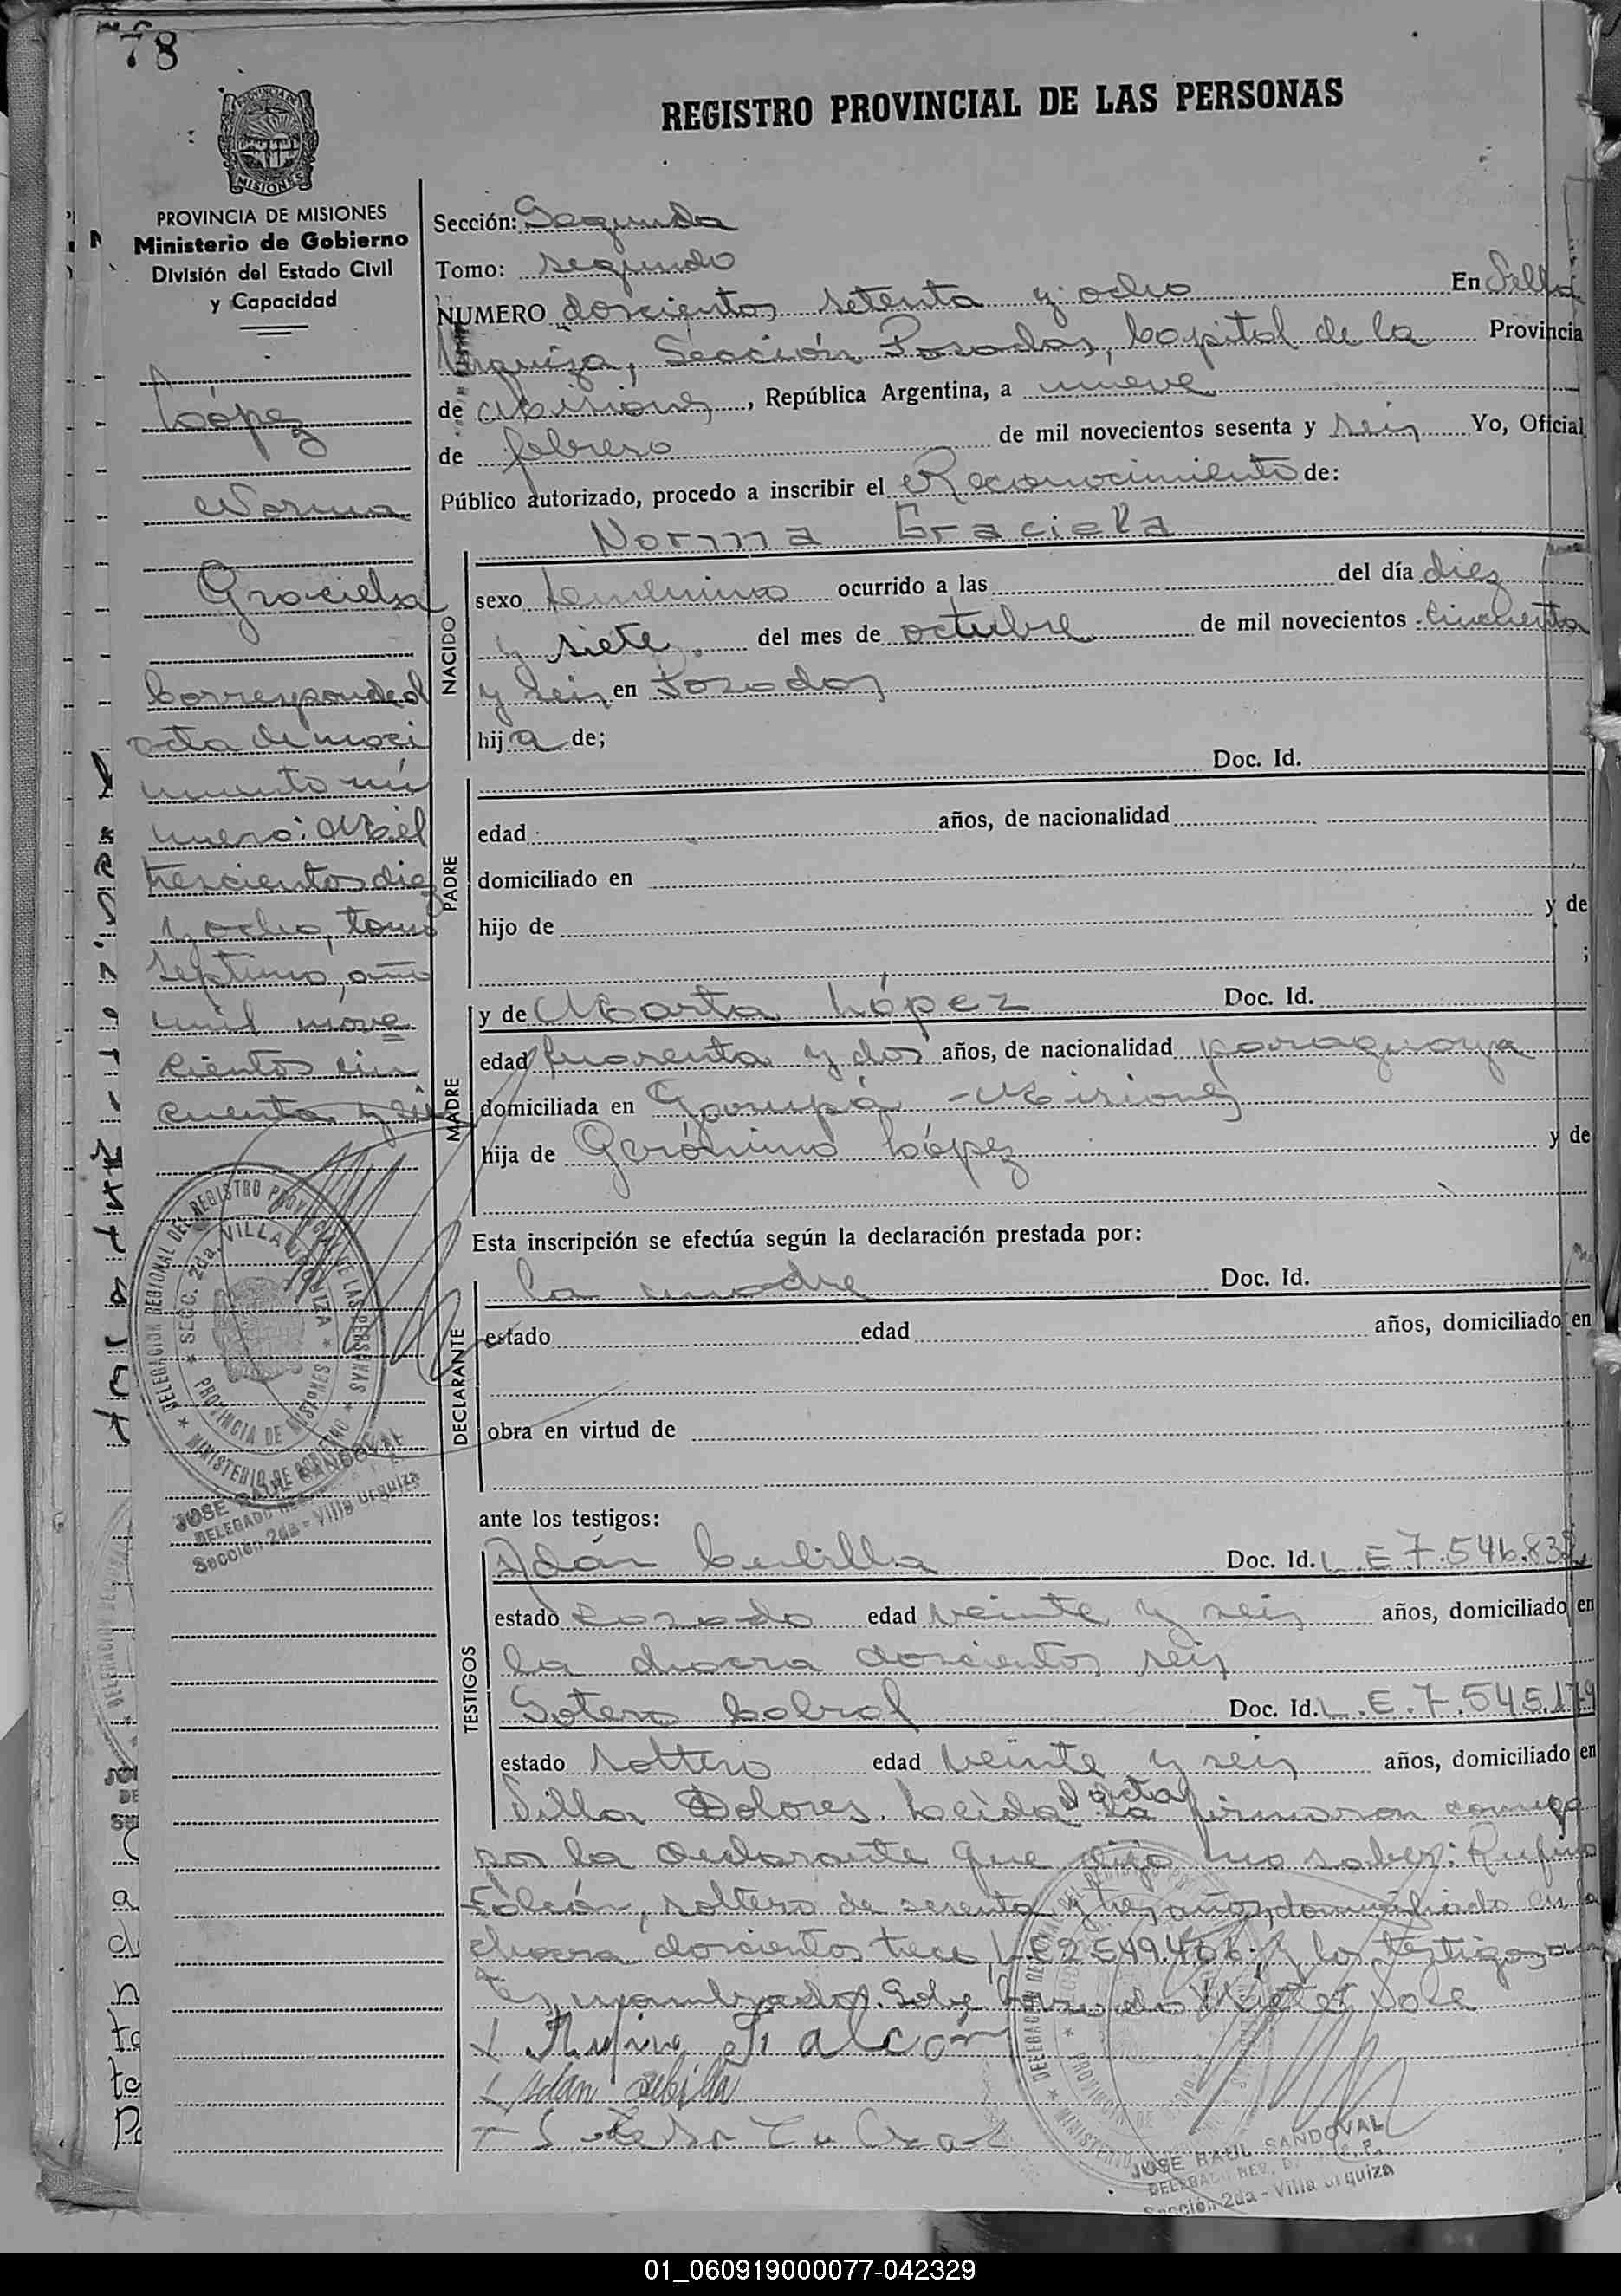 78
REGISTRO PROVINCIAL DE LAS PERSONAS
PROVINCIA DE
MISIONES
PROVINCIA DE MISIONES
Ministerio de Gobierno
División del Estado Civil
y Capacidad
López
Norma
Graciela
Corresponde al
acta de naci
miento nú
mero: Mil
trescientos diez
y ocho, tomo
septimo, año
mil nove
cientos cin
cuenta y seis
DELEGACION REGIONAL DEL REGISTRO PROVINCIAL DE LAS PERSONAS
SECC. 2da. VILLA URQUIZA
PROVINCIA DE MISIONES
MINISTERIO DE GOBIERNO
JOSE RAUL SANDOVAL
DELEGADO
Sección 2da - Villa Urquiza
Sección: Segunda
Tomo: segundo
NUMERO doscientos setenta y ocho En Villa
Urquiza, Sección Posadas, Capital de la Provincia
de Misiones, República Argentina, a nueve
de febrero de mil novecientos sesenta y seis Yo, Oficial
Público autorizado, procedo a inscribir el Reconocimiento de:
Norma Graciela
NACIDO
sexo femenino ocurrido a las del día diez
y siete del mes de octubre de mil novecientos cincuenta
y seis en Posadas
hija de;
Doc. Id.
PADRE
edad años, de nacionalidad
domiciliado en
hijo de y de
;
MADRE
y de Marta López Doc. Id.
edad cuarenta y dos años, de nacionalidad paraguaya
domiciliada en Garupá - Misiones
hija de Gerónimo López y de
Esta inscripción se efectúa según la declaración prestada por:
DECLARANTE
la madre Doc. Id.
estado edad años, domiciliado en
obra en virtud de
ante los testigos:
TESTIGOS
Adán Cubilla Doc. Id. L.E 7.546.832
estado casado edad veinte y seis años, domiciliado en
la chacra doscientos seis
Sotero Cabral Doc. Id. L.E.7.545.179
estado soltero edad veinte y seis años, domiciliado en
Villa Dolores. Leida el acta la firmaron conmigo
por la declarante que dijo no saber: Rufino
Falcón, soltero de sesenta y tres años, domiciliado en la
chacra doscientos trece, L.E 2549.406; y los testigos an
tes nombrados. Sobre Vale
Rufino Falcón
Adán Cubilla
JOSE RAUL SANDOVAL
DELEGADO REG.
Sección 2da - Villa Urquiza
01_060919000077-042329